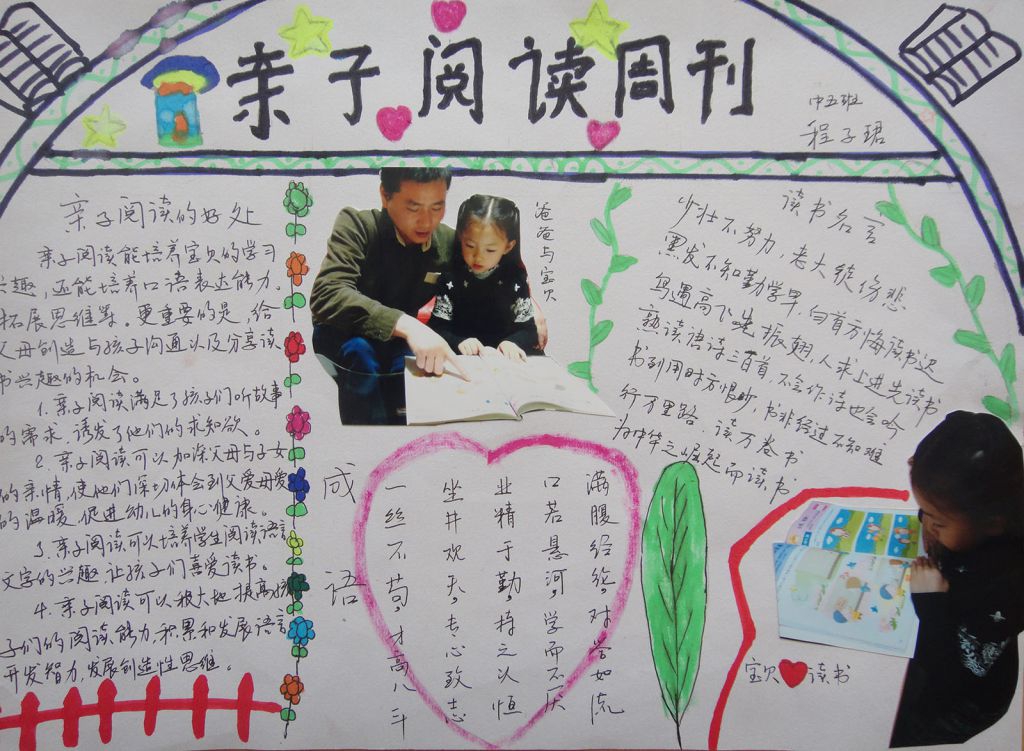 亲子阅读周刊
中五班
程子珺
亲子阅读的好处
亲子阅读能培养宝贝的学习
兴趣,还能培养口语表达能力。
拓展思维等。更重要的是,给
父母创造与孩子沟通以及分享读
书兴趣的机会。
1.亲子阅读满足了孩子们听故事
的需求,诱发了他们的求知欲。
2.亲子阅读可以加深父母与子女
的亲情,使他们深切体会到父爱母爱
的温暖,促进幼儿的身心健康。
3.亲子阅读可以培养学生阅读语言
文字的兴趣,让孩子们喜爱读书。
4.亲子阅读可以极大地提高孩
子们的阅读能力,积累和发展语言
开发智力,发展创造性思维。
爸爸与宝贝
读书名言
少壮不努力,老大徒伤悲
黑发不知勤学早,白首方悔读书迟
鸟遇高飞先振翅,人求上进先读书
熟读唐诗三百首,不会作诗也会吟
书到用时方恨少,书非经过不知难
行万里路,读万卷书
为中华之崛起而读书
成语
满腹经纶,对答如流
口若悬河,学而不厌
业精于勤,持之以恒
坐井观天,专心致志
一丝不苟,才高八斗
宝贝读书